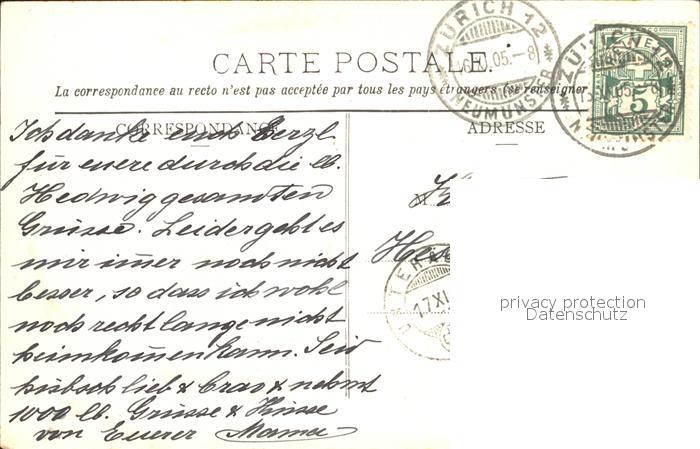 CARTE POSTALE.
La correspondance au recto n'est pas acceptée par tous les pays étrangers (se renseigner
CORRESPONDANCE
ADRESSE
Ich danke euch herzl
für euere durch die lb.
Hedwig gesandten
Grüsse. Leider geht es
mir im̄er noch nicht
besser, so dass ich wohl
noch recht lange nicht
heimkom̄en kann. Seid
hübsch lieb & brav & nehmt
1000 lb. Grüsse & Küsse
von Euerer Mama
ZÜRICH 12
16.XI.05.-8
NEUMÜNSTER
5
17.XI
privacy protection
Datenschutz